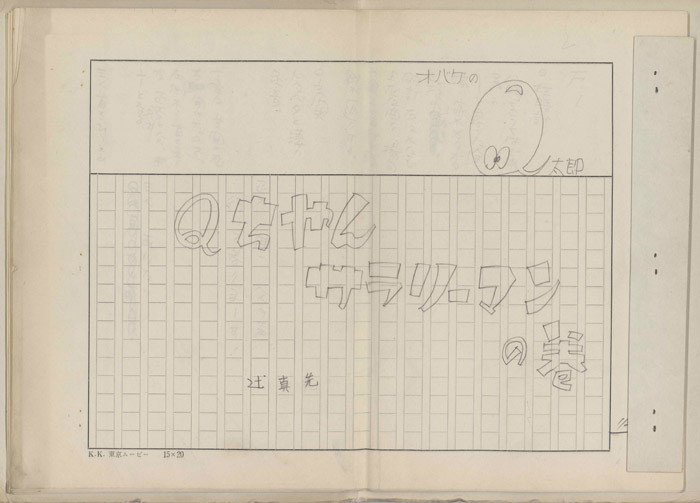 オバケの
Q太郎
Qちゃん
サラリーマン
の巻
辻真先
K.K. 東京ムービー 15×20